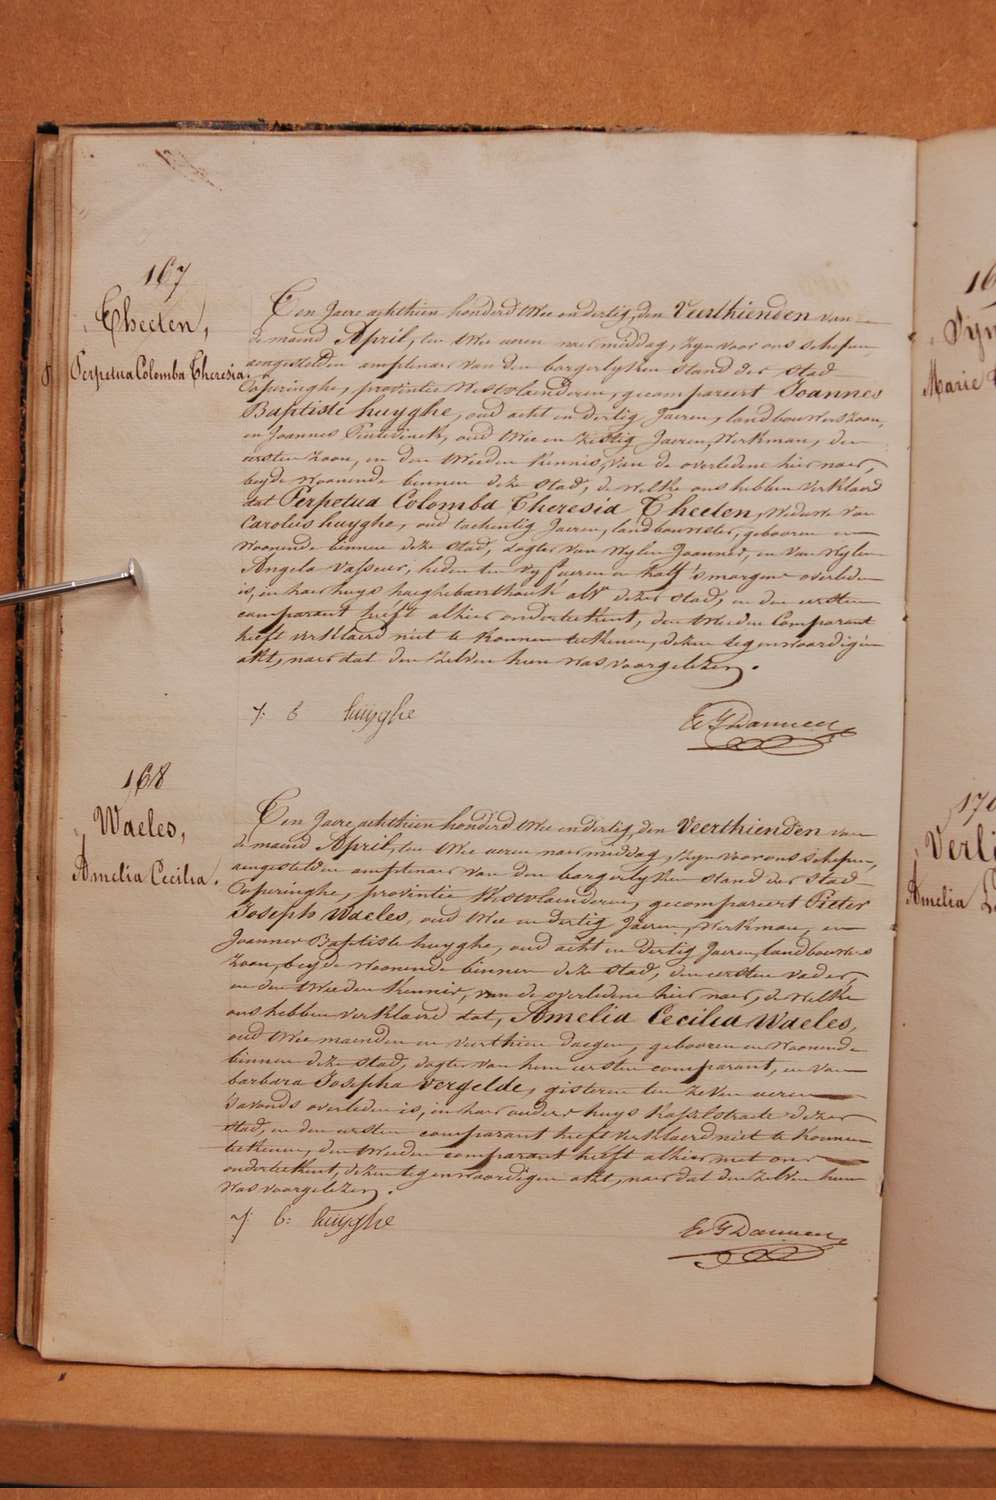 167
Theeten,
Perpetua Colomba Theresia.
Ten Jaere achthien honderd twee en dertig, den Veerthienden van
de maend April, ten twee ueren naer middag, zyn voor ons schepen
aengestelden amptenaer van den borgerlyken stand der stad
Poperinghe, provintie Westvlaenderen, gecompareert Joannes
Baptiste huyghe, oud acht en dertig Jaeren, landbouwers zoon,
en Joannes oud twee en zestig Jaeren, Werkman, den
eersten zoon, en den tweeden kennis, van de overledene hier naer,
beyde woonende binnen deze stad, de welke ons hebben verklaerd
dat Perpetua Colomba Theresia Theeten, Weduwe van
Carolus huyghe, oud tachentig Jaeren, landbouwster, gebooren en
woonende binnen deze stad, dogter van wylen Joannes, en van wylen
Angela Vasseur, heden ten vyf ueren en half 's morgens overleden
is, in haer huys haeghebaerthoek dezer stad, en den eersten
comparant heeft alhier onderteekent, den tweeden Comparant
heeft verklaerd niet te konnen teekenen, dezen tegenwoordigen
akt, naer dat den zelven hun was voorgelezen.
j: b huyghe
168
Waeles,
Amelia Cecilia.
Ten Jaere achthien honderd twee en dertig, den Veerthienden van
de maend April, ten twee ueren naer middag, zyn voor ons schepen,
aengestelden amptenaer van den borgerlyken stand der stad
Poperinghe, provintie Westvlaenderen, gecompareert Pieter
Joseph Waeles, oud twee en dertig Jaeren, Werkman, en
Joannes Baptiste huyghe, oud acht en dertig Jaeren, landbouwers
zoon, beyde woonende binnen deze stad, den eersten vader,
en den tweeden kennis, van de overledene hier naer, de welke
ons hebben verklaerd dat, Amelia Cecilia Waeles,
oud twee maenden en veerthien daegen, gebooren en woonende
binnen deze stad, dogter van hem eersten comparant, en van
barbara Josepha Vergelde, gisteren ten zeven ueren
s'avonds overleden is, in haer ouders huys kasselstraete dezer
stad, en den eersten comparant heeft verklaerd niet te konnen
teekenen, den tweeden comparant heeft alhier met ons
onderteekent, dezen tegenwoordigen akt, naer dat den zelven hun
was voorgelezen.
j: b: huyghe
Marie
170
Verli
Amelia